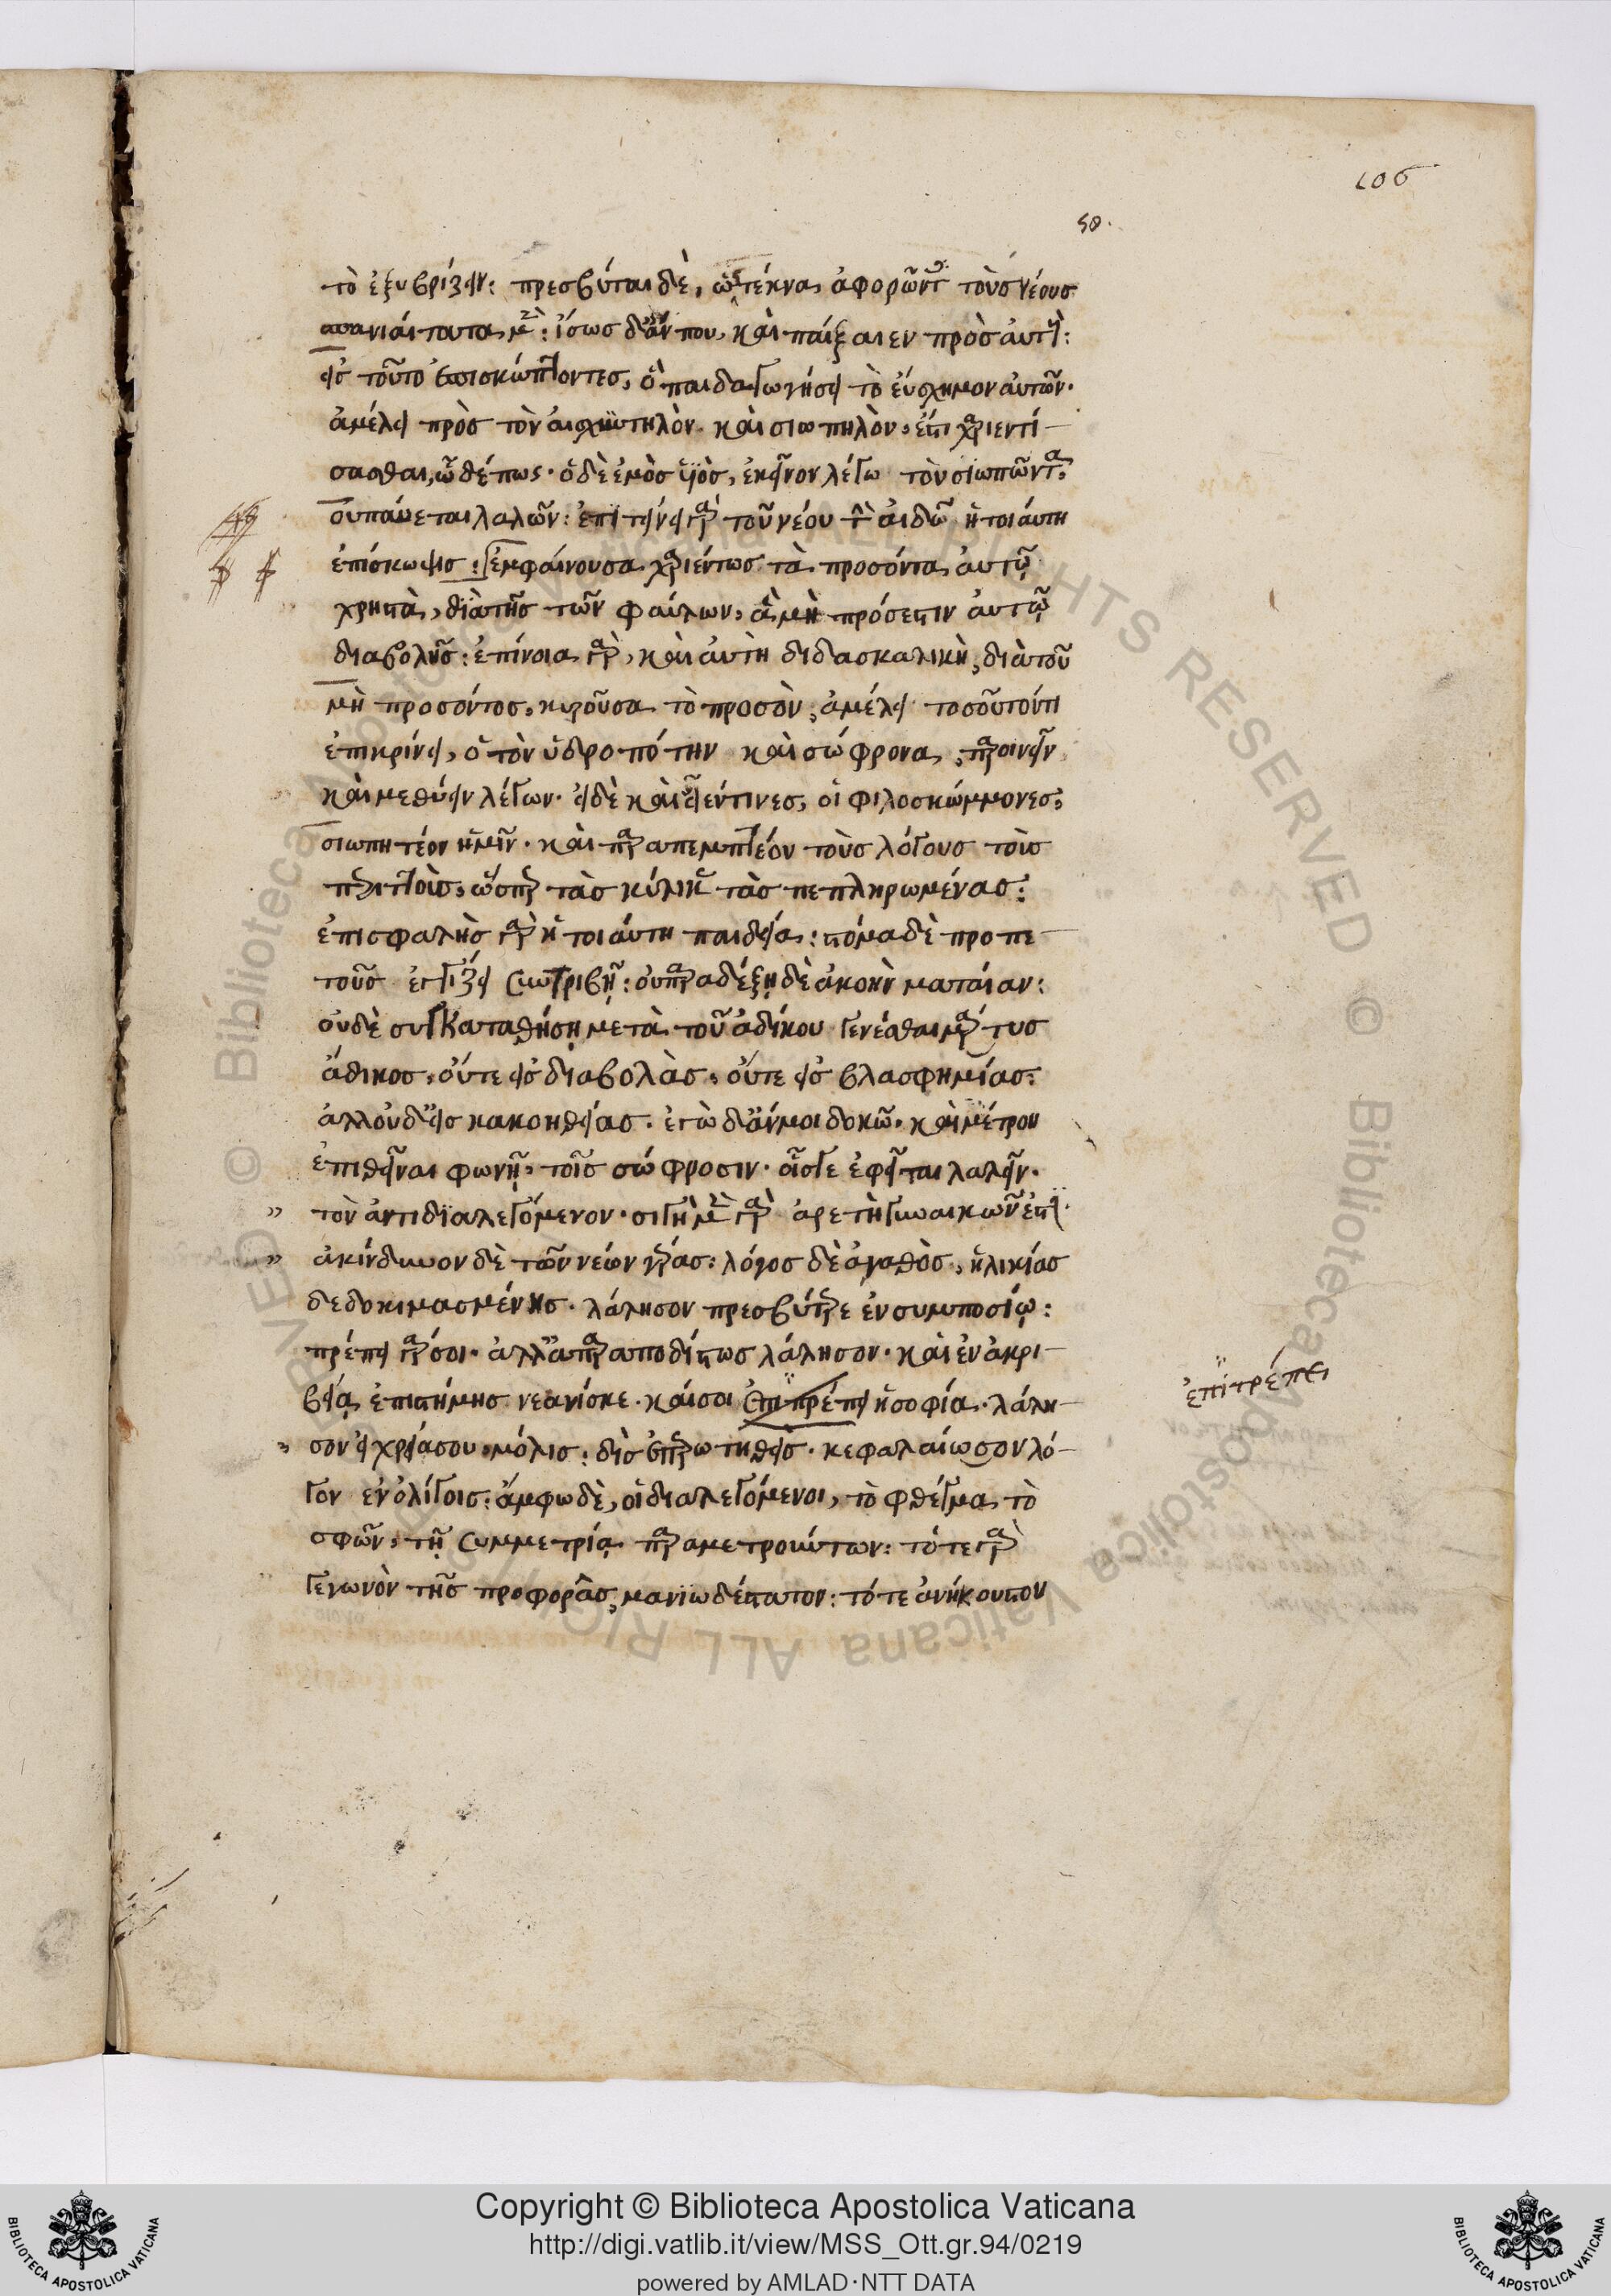 106
50.
τὸ ἐξυβρίζειν: πρεσβύται δὲ, ὡς τέκνα, ἀφορῶντες τοὺς νέους
σπανιαίτατα μὲν: ἴσως δ' ἄν που, καὶ παίξαιεν πρὸς αὐτοὺς:
εἰς τοῦτο ἐπισκώπτοντες, ὃ παιδαγωγήσει τὸ εὔσχημον αὐτῶν.
ἀμέλει πρὸς τὸν αἰσχυντηλὸν καὶ σιωπηλὸν, ἔστι χαριεντί-
σασθαι, ὧδέ πως. ὁ δὲ ἐμὸς υἱὸς, ἐκεῖνον λέγω τὸν σιωπῶντα,
οὐ παύεται λαλῶν: ἐπιτείνει γὰρ τοῦ νέου τὴν αἰδῶ ἡ τοιαύτη
ἐπίσκωψις: ἐμφαίνουσα χαριέντως τὰ προσόντα αὐτῷ
χρηστὰ, διὰ τῆς τῶν φαύλων, ἃ μὴ πρόσεστιν αὐτῷ
διαβολῆς: ἐπίνοια γὰρ, καὶ αὐτὴ διδασκαλικὴ, διὰ τοῦ
μὴ προσόντος, κυροῦσα τὸ προσὸν, ἀμέλει τοσοῦτόν τι
ἐπικρίνει, ὁ τὸν ὑδροπότην καὶ σώφρονα, παροινεῖν
καὶ μεθύειν λέγων. εἰ δὲ καὶ εἶέν τινες, οἱ φιλοσκώμμονες,
σιωπητέον ἡμῖν. καὶ παραπεμπτέον τοὺς λόγους τοὺς
περιττοὺς, ὥσπερ τὰς κύλικας τὰς πεπληρωμένας:
ἐπισφαλὴς γὰρ ἡ τοιαύτη παιδειά: στόμα δὲ προπε-
τοῦς ἐγγίζει συντριβῇ: οὐ παραδέξῃ δὲ ἀκοὴν ματαίαν:
οὐδὲ συγκαταθήσῃ μετὰ τοῦ ἀδίκου γενέσθαι μάρτυς
ἄδικος, οὔτε εἰς διαβολὰς, οὔτε εἰς βλασφημίας:
ἀλλ' οὐδ' εἰς κακοηθείας. ἐγὼ δ' ἄν μοι δοκῶ. καὶ μέτρον
ἐπιθεῖναι φωνῆς, τοῖς σώφροσιν. οἷς γε ἐφεῖται λαλεῖν.
τὸν ἀντιδιαλεγόμενον. σιγὴ μὲν γὰρ ἀρετὴ γυναικῶν ἐστὶ.
ἀκίνδυνον δὲ τῶν νέων γέρας: λόγος δὲ ἀγαθὸς, ἡλικίας
δεδοκιμασμένης. λάλησον πρεσβύτερε ἐν συμποσίῳ:
πρέπει γάρ σοι. ἀλλ' ἀπαραποδίστως λάλησον. καὶ ἐν ἀκρι-
βείᾳ ἐπιστήμης νεανίσκε. καί σοι ἐπιπρέπει ἡ σοφία. λάλη-
σον εἰ χρεία σου μόλις: δὶς ἐπερωτηθεὶς. κεφαλαίωσον λό-
γον ἐν ὀλίγοις: ἄμφω δὲ, οἱ διαλεγόμενοι, τὸ φθέγμα τὸ
σφῶν, τῇ συμμετρίᾳ παραμετρούντων: τό τε γὰρ
γεγωνὸν τῆς προφορᾶς, μανιωδέστατον: τό τε ἀνήκουστον
ἐπιτρέπει
Copyright © Biblioteca Apostolica Vaticana
http://digi.vatlib.it/view/MSS_Ott.gr.94/0219
powered by AMLAD·NTT DATA
BIBLIOTECA APOSTOLICA VATICANA
BIBLIOTECA APOSTOLICA VATICANA